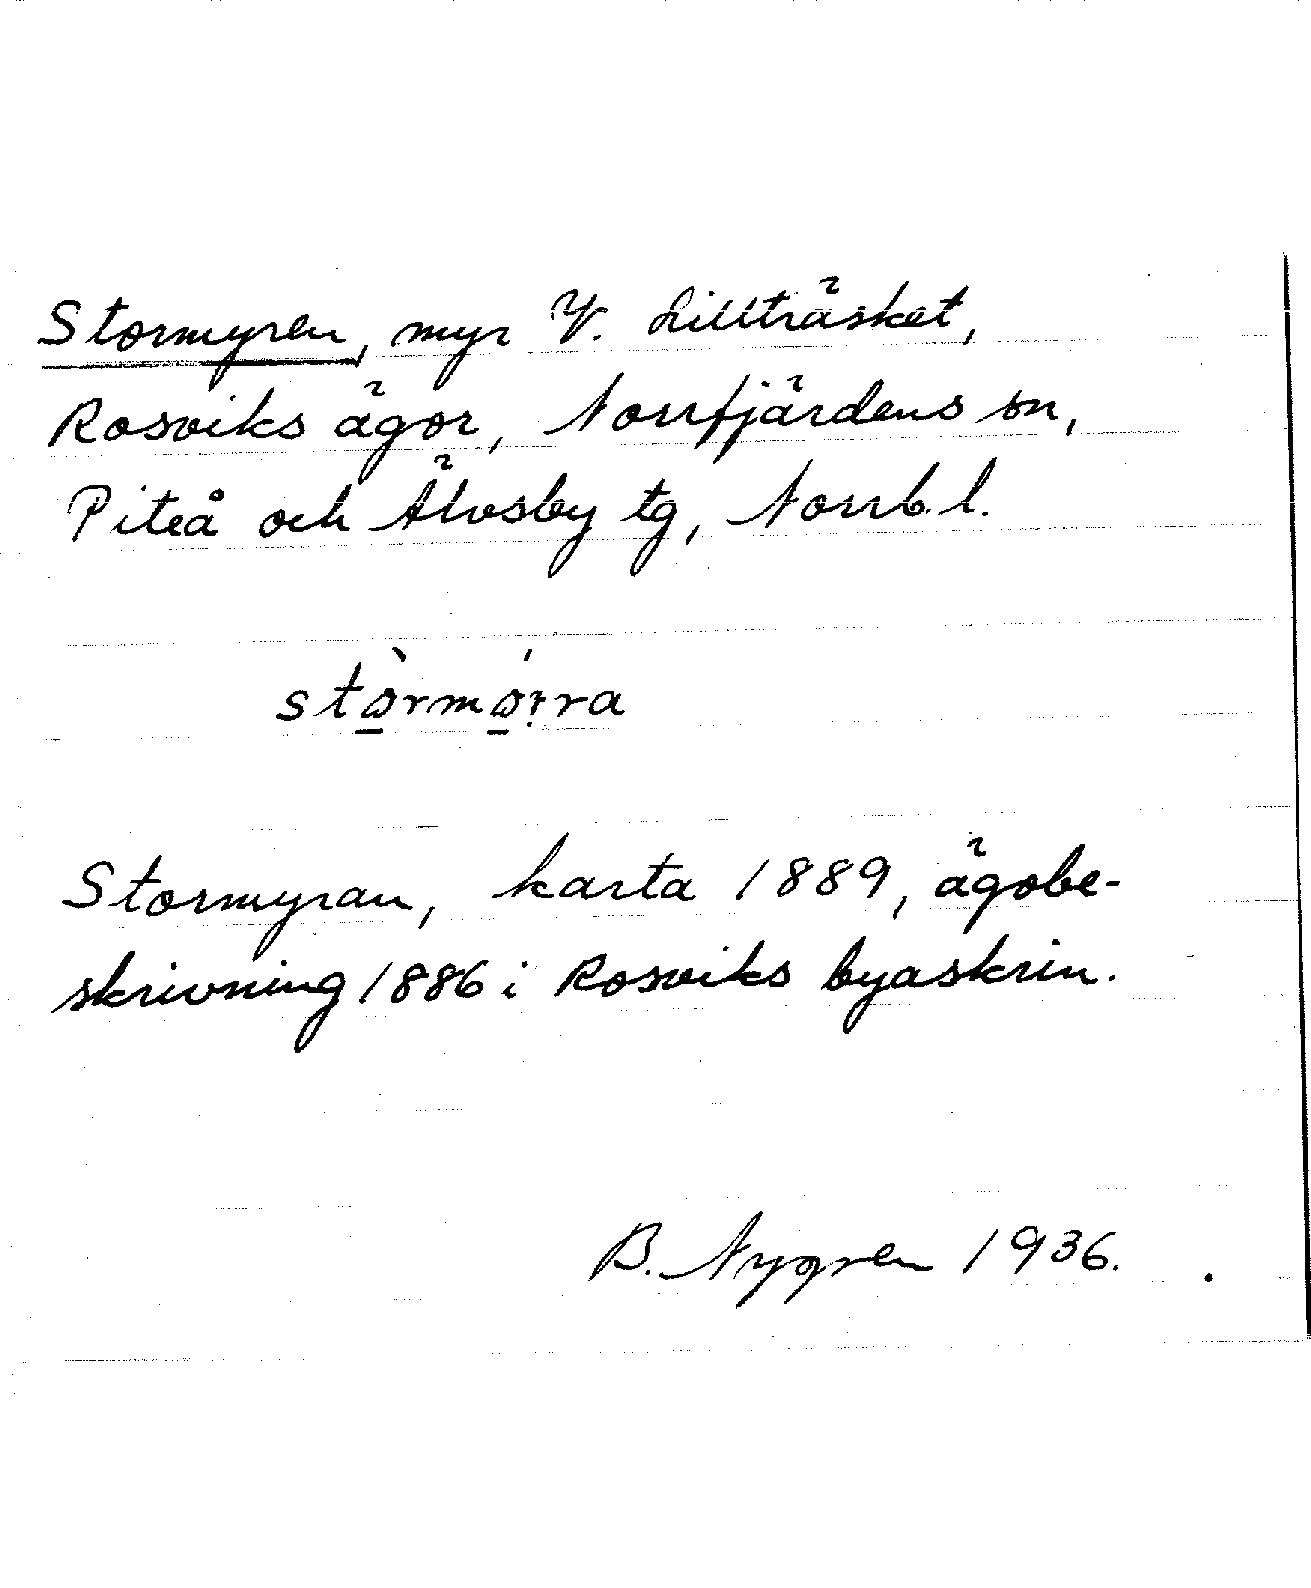 Stormyren, myr V. Lillträsket,
Rosviks ägor, Norrfjärdens sn,
Piteå och Älvsby tg, Norrb. l.
stò̱rmó̱rra
Stormyran, karta 1889, ägobe-
skrivning 1886 i Rosviks byaskrin.
B. Nygren 1936.